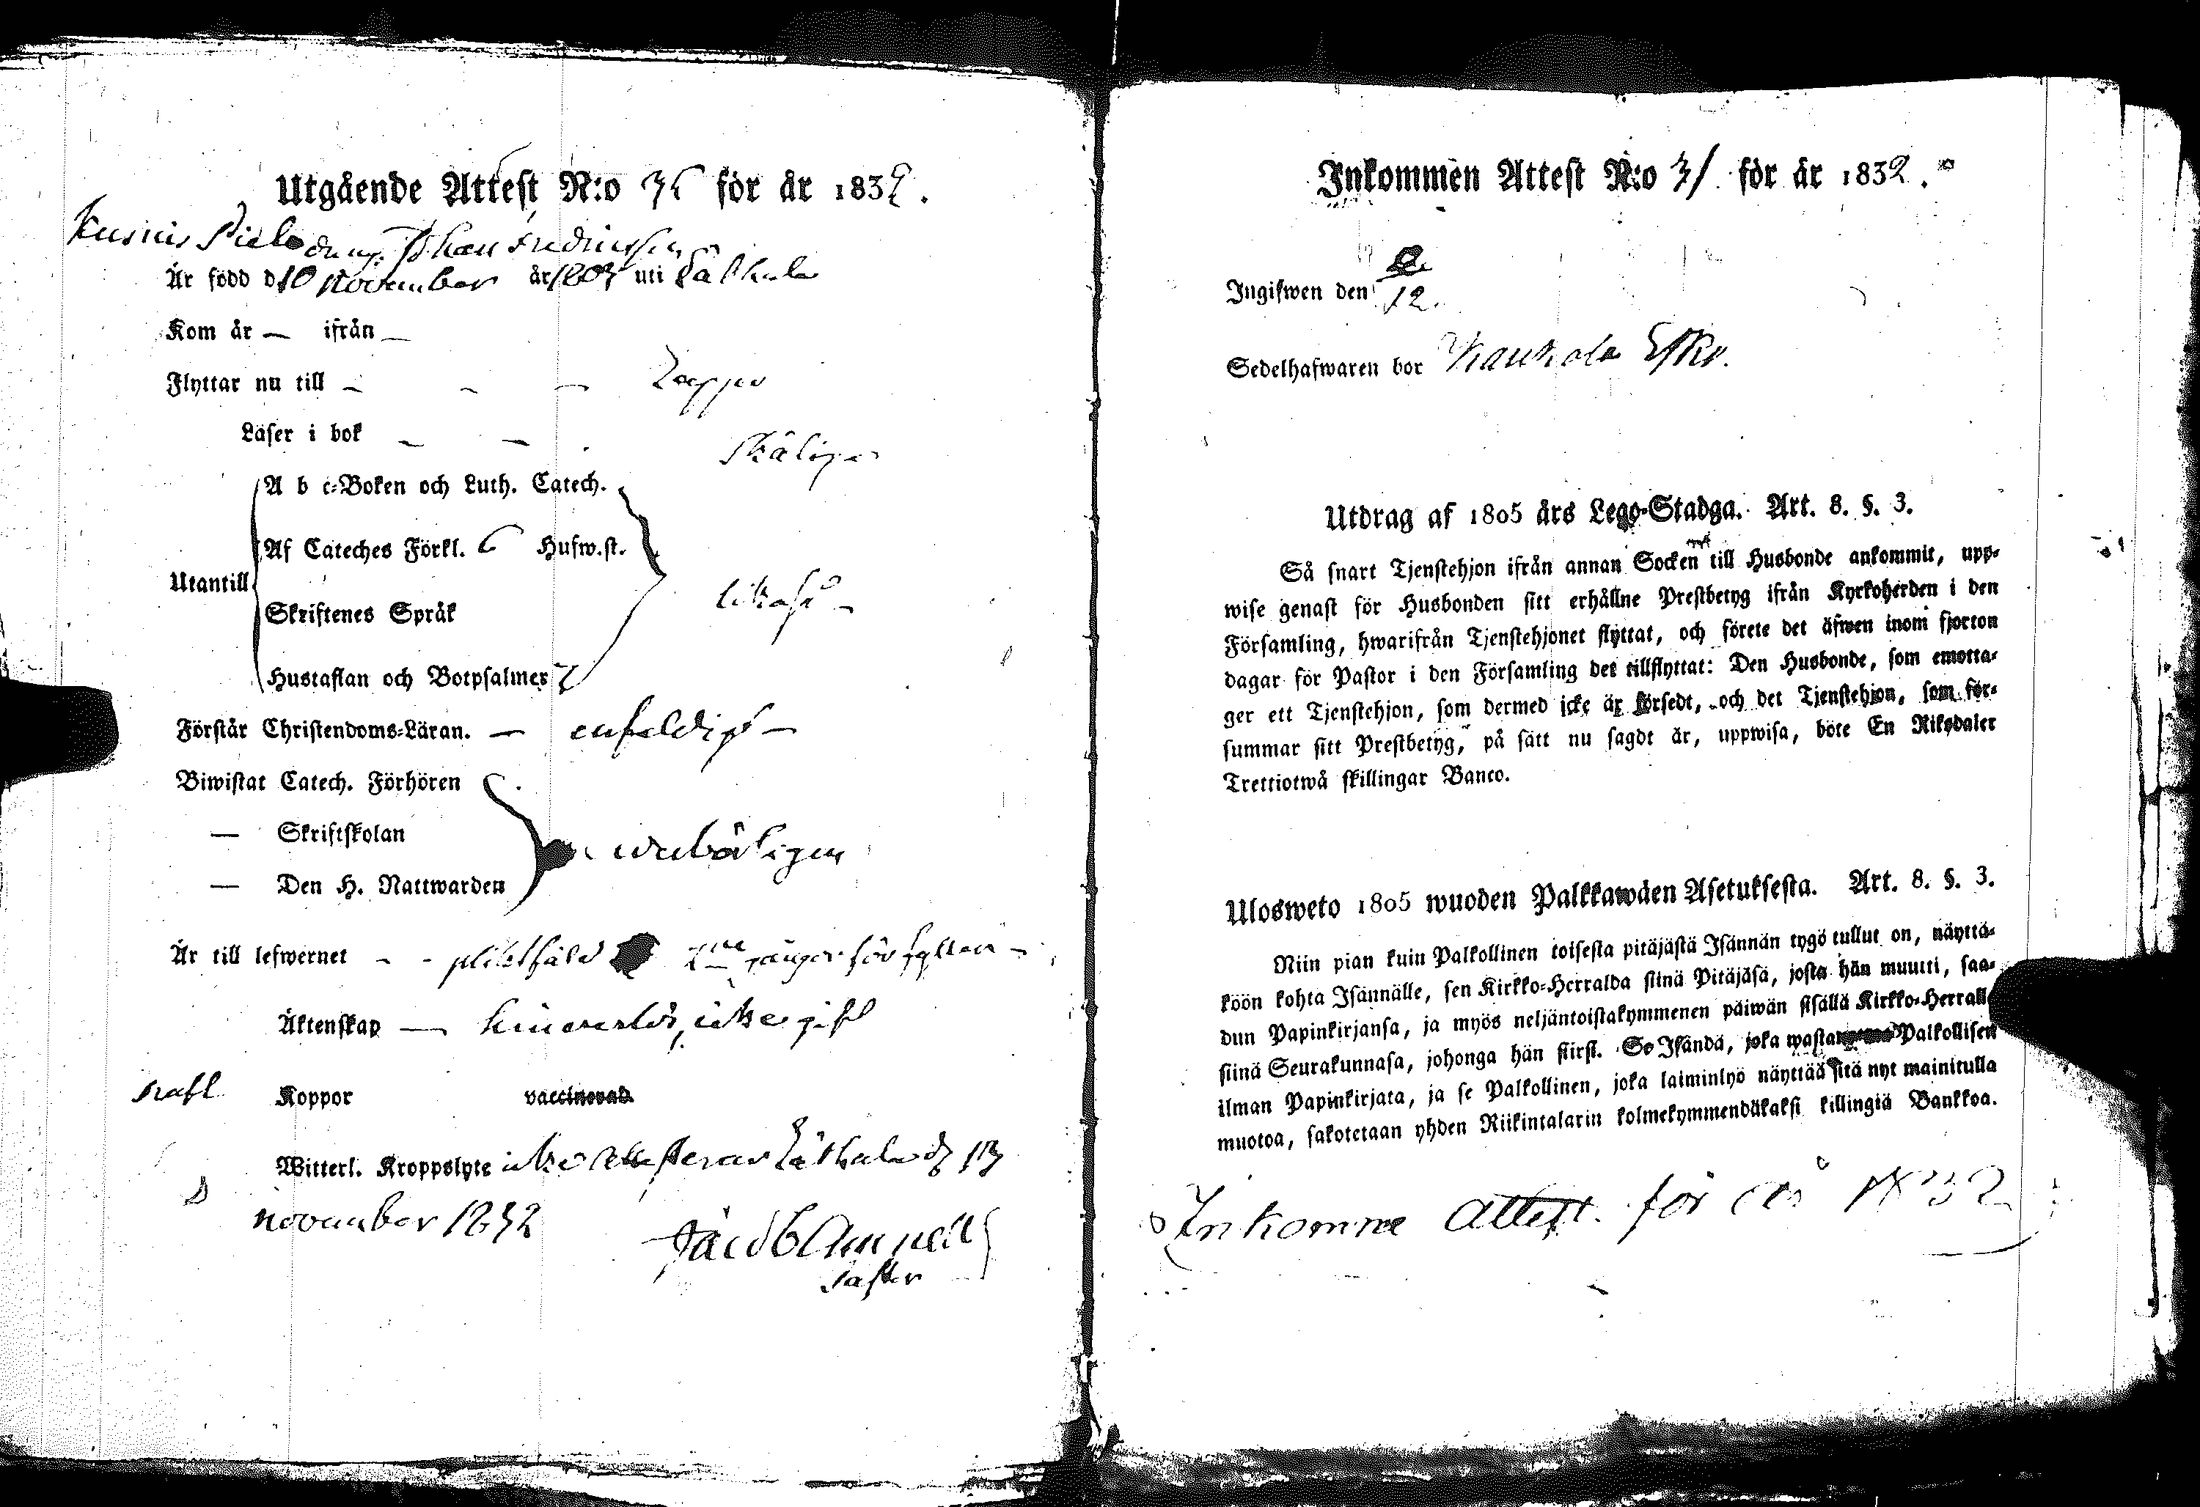 Utgående Attest N:o 36 för år 1832.
Johan
Är född d. 10 November år 1803 uti Låthala
Kom år — ifrån —
Flyttar nu till — — — Loppo
Läser i bok — —
A b c-Boken och Luth. Catech.
Af Cateches Förkl. 6 Husw.st.
Utantill
Skriftenes Språk
Hustaflan och Botpsalmer 7
Förstår Christendoms-Läran. — enfaldigt —
Biwistat Catech. Förhören
— Skriftskolan
— Den H. Nattwarden
Är till lefwernet - - för
Äktenskap — hinderslös, icke gift
haft Koppor vaccinerad.
Witterl. Kroppslyte icke
november 1832
Jacob
Pastor
Inkommen Attest N:o 31. för år 1832.
Ingifwen den 12.
Sedelhafwaren bor
Utdrag af 1805 års Lego-Stadga. Art. 8. §. 3.
Så snart Tjenstehjon ifrån annan Socken till Husbonde ankommit, upp-
wise genast för Husbonden sitt erhållne Prestbetyg ifrån Kyrkoherden i den
Församling, hwarifrån Tjenstehjonet flyttat, och förete det äfwen inom fjorton
dagar för Pastor i den Församling det tillflyttat: Den Husbonde, som emotta-
ger ett Tjenstehjon, som dermed icke är försedt, och det Tjenstehjon, som för-
summar sitt Prestbetyg, på sätt nu sagdt är, uppwisa, böte En Riksdaler
Trettiotwå skillingar Banco.
Ulosweto 1805 wuoden Palkkawäen Asetuksesta. Art. 8. §. 3.
Niin pian kuin Palkollinen toisesta pitäjästä Isännän tygö tullut on, näyttä-
köön kohta Isännälle, sen Kirkko-Herralda siinä Pitäjäsä, josta hän muutti, saa-
dun Papinkirjansa, ja myös neljäntoistakymmenen päiwän sisällä Kirkko-Herrall
siinä Seurakunnasa, johonga hän siirsi. Se Isändä, joka wasta Palkollisen
ilman Papinkirjata, ja se Palkollinen, joka laiminlyö näyttää sitä nyt mainitulla
muotoa, sakotetaan yhden Riikintalarin kolmekymmendäkaksi killingiä Bankkoa.
Inkomne Attest. för år 1832